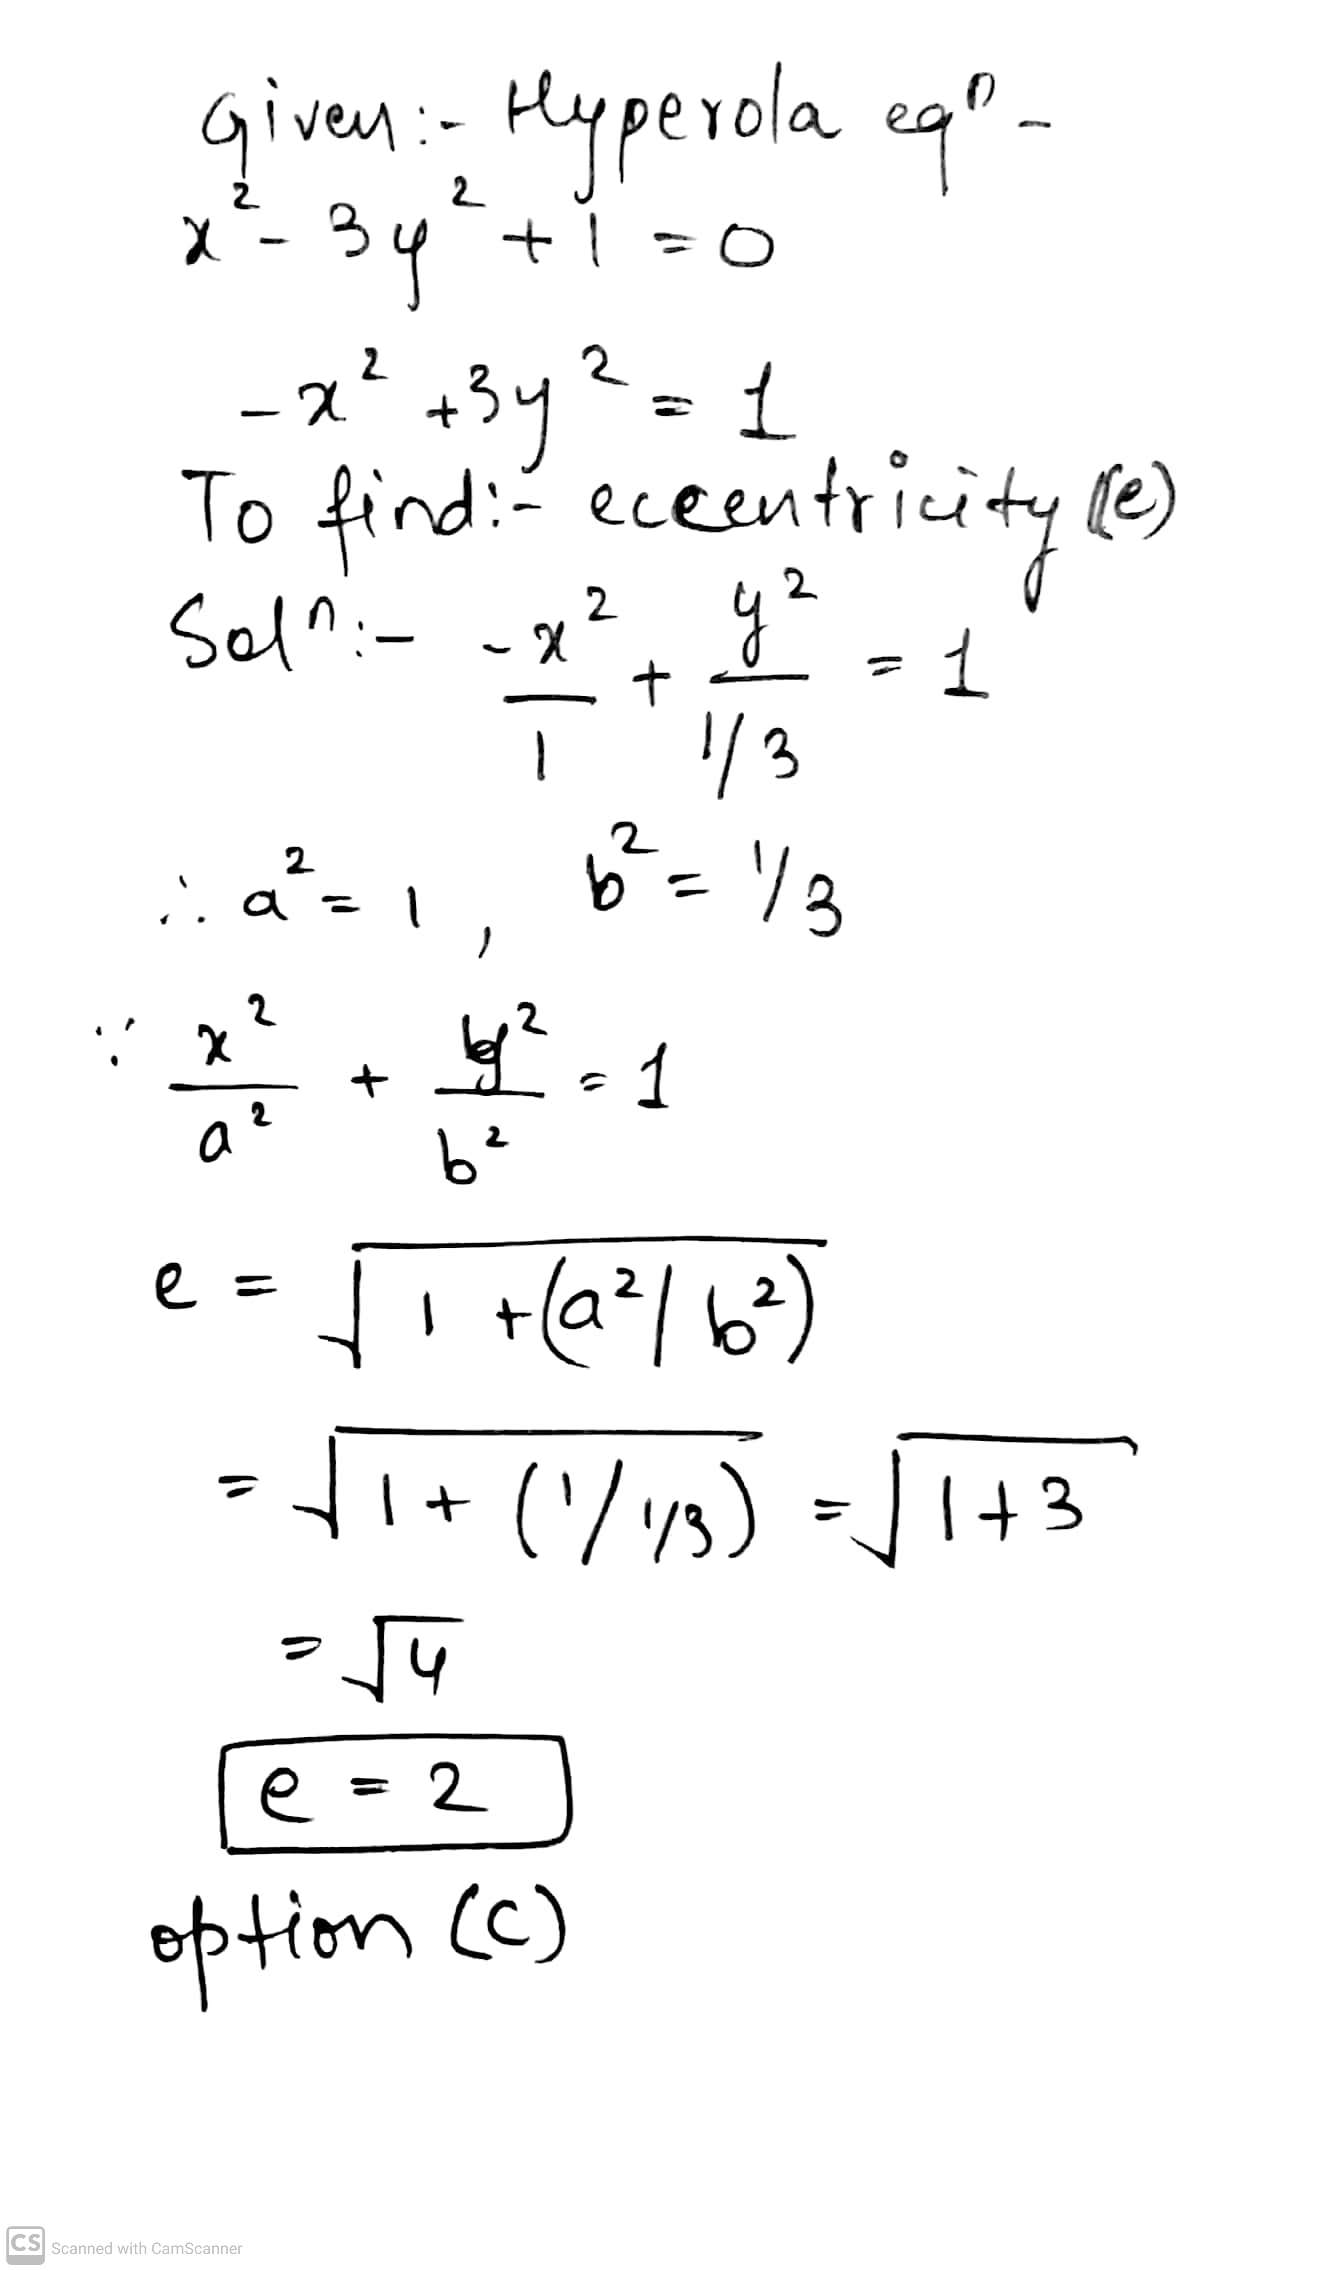 Given:- Hyperola eqⁿ -
x² - 3y² + 1 = 0
-x² + 3y² = 1
To find:- eccentricity (e)
Solⁿ:- -x²/1 + y²/1/3 = 1
∴ a² = 1, b² = 1/3
∵ x²/a² + y²/b² = 1
e = √(1 + (a²/b²))
= √(1 + (1/1/3)) = √(1+3)
= √4
e = 2
option (c)
CS Scanned with CamScanner